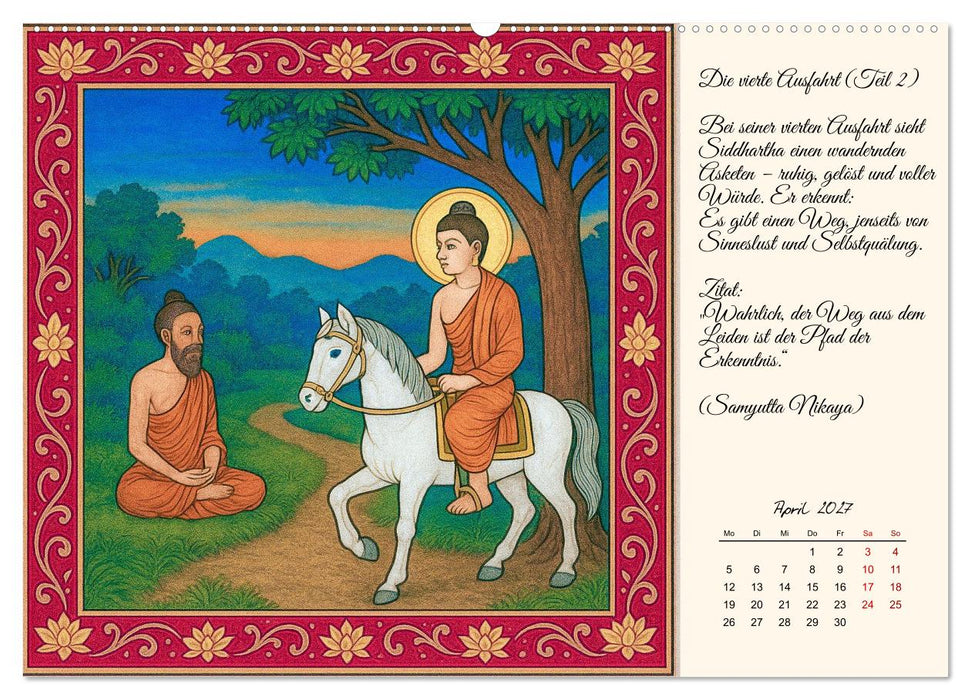 Die vierte Ausfahrt (Teil 2)
Bei seiner vierten Ausfahrt sieht
Siddhartha einen wandernden
Asketen – ruhig, gelöst und voller
Würde. Er erkennt:
Es gibt einen Weg, jenseits von
Sinneslust und Selbstquälung.
Zitat:
„Wahrlich, der Weg aus dem
Leiden ist der Pfad der
Erkenntnis.“
(Samyutta Nikaya)
April 2027
Mo Di Mi Do Fr Sa So
1 2 3 4
5 6 7 8 9 10 11
12 13 14 15 16 17 18
19 20 21 22 23 24 25
26 27 28 29 30